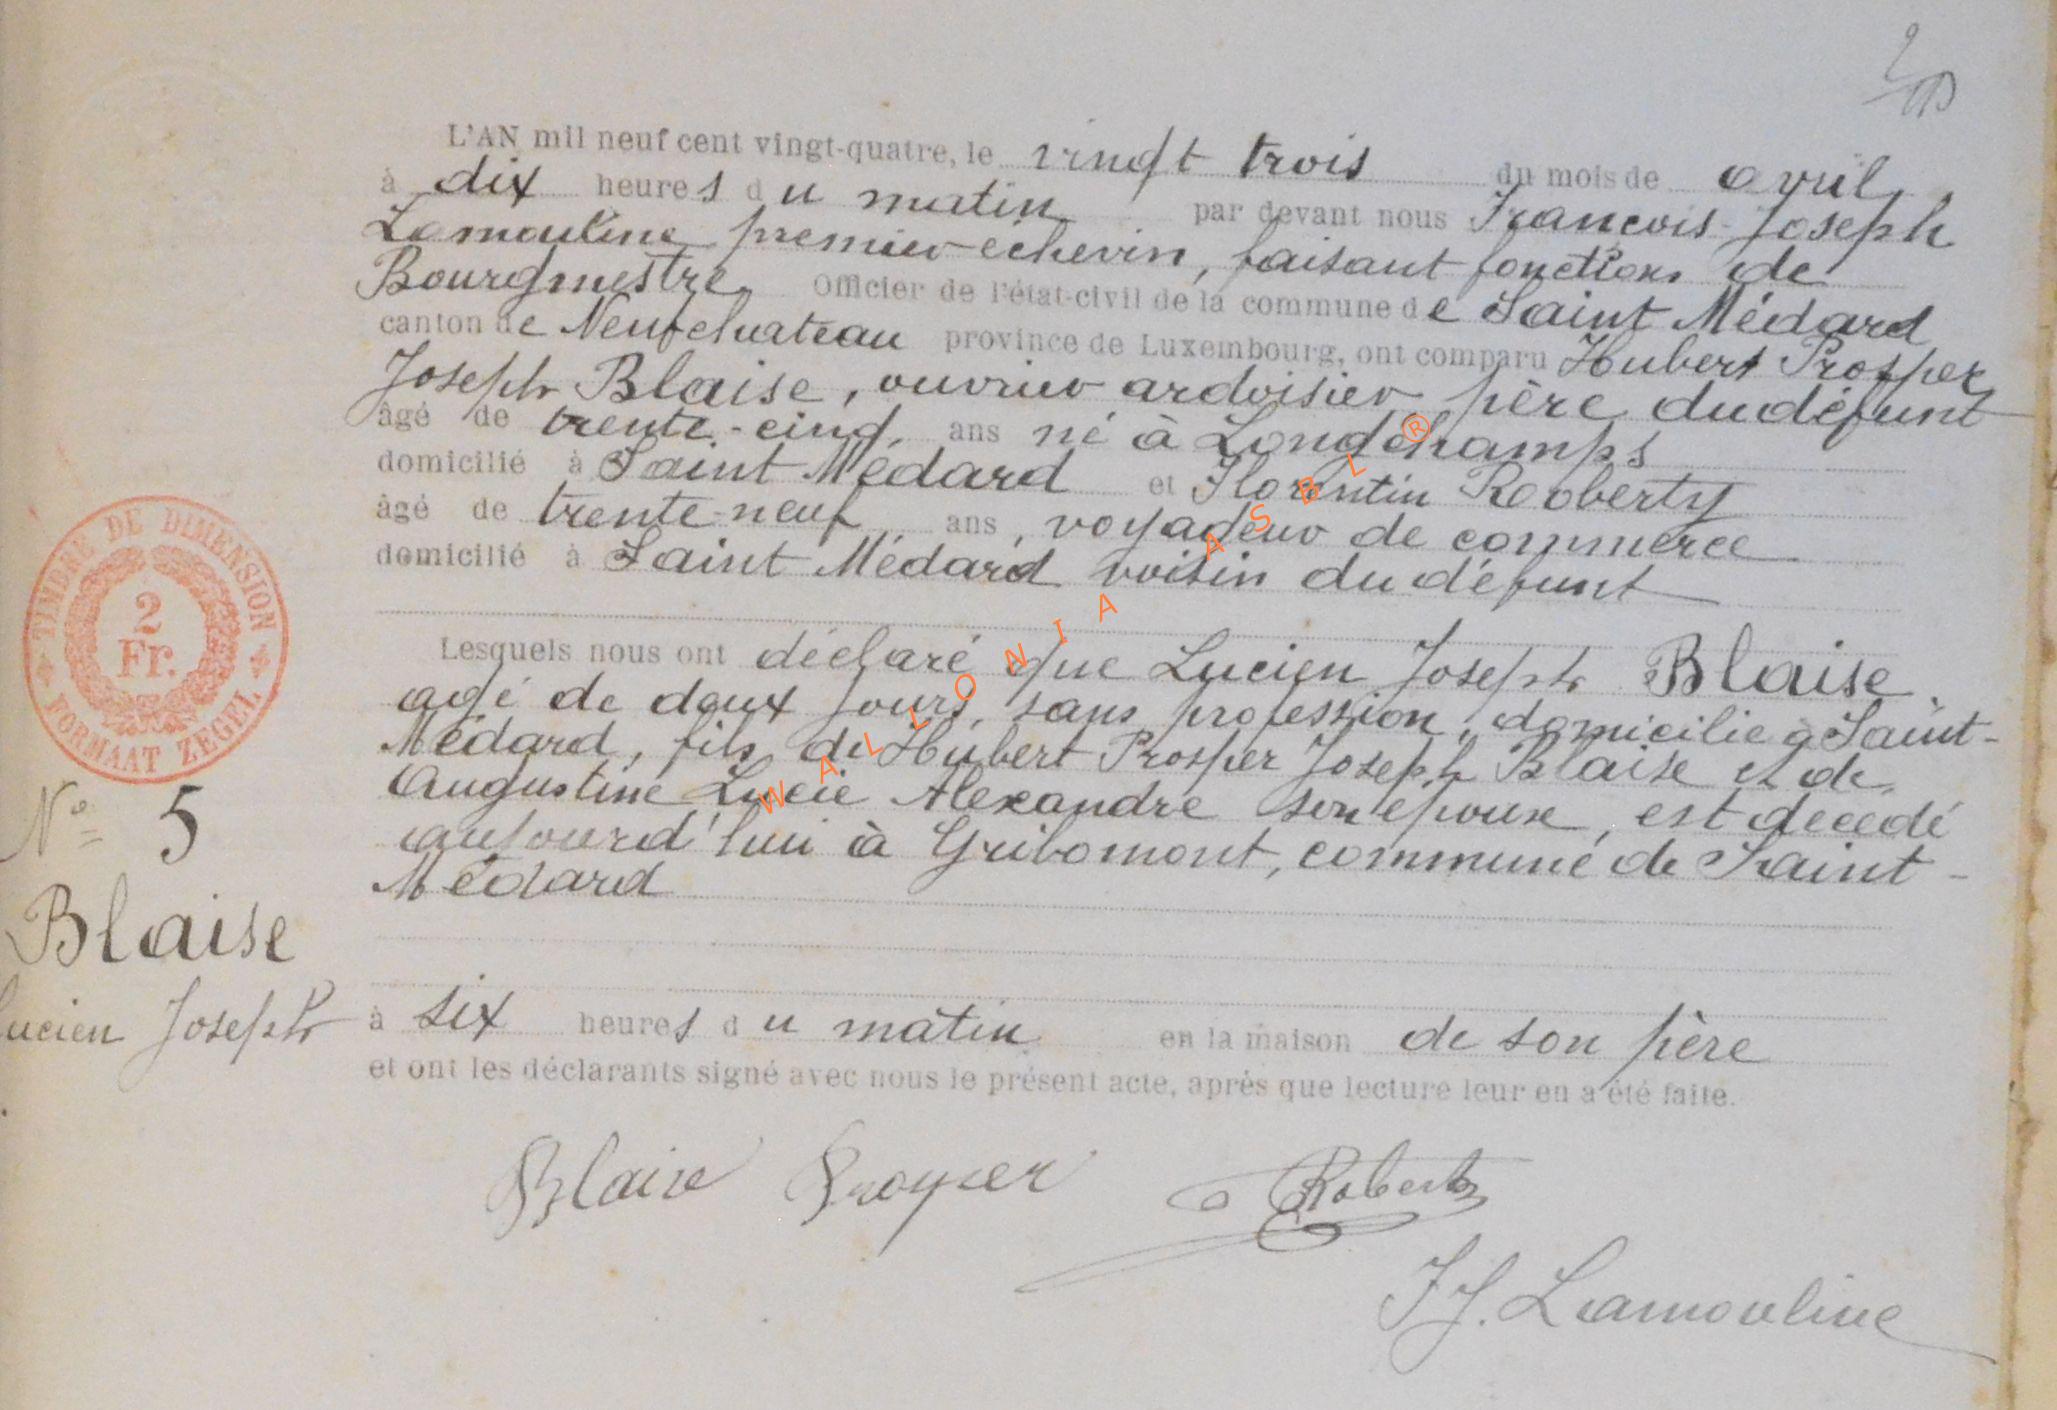 2
L'AN mil neuf cent vingt-quatre, le vingt trois du mois de avril,
à dix heures du matin par devant nous François-Joseph
Lamouline premier échevin, faisant fonctions de
Bourgmestre Officier de l'état-civil de la commune de Saint Médard
canton de Neufchateau province de Luxembourg, ont comparu Hubert Prosper
Joseph Blaise, ouvrier ardoisier père du défunt
âgé de trente-cinq ans né à Longchamps
domicilié à Saint Médard et Florentin Rooberty
âgé de trente-neuf ans, voyageur de commerce
domicilié à Saint Médard voisin du défunt
Lesquels nous ont déclaré que Lucien Joseph Blaise,
agé de deux jours, sans profession, domicilié à Saint-
Médard, fils de Hubert Prosper Joseph Blaise et de
Augustine Lucie Alexandre son épouse, est décédé
aujourd'hui à Gribomont, commune de Saint-
Médard
à six heures du matin en la maison de son père
et ont les déclarants signé avec nous le présent acte, après que lecture leur en a été faite.
Blaise Prosper
Roberty
F J. Lamouline
TIMBRE DE DIMENSION
2
Fr.
FORMAAT ZEGEL
N° 5
Blaise
Lucien Joseph
WALLONIA ASBL ®